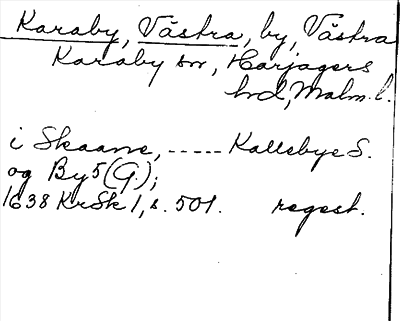 Karaby, Västra, by, Västra
Karaby sn, Harjagers
hd, Malm. l.
i Skaane, ----- Kallebye S.
og By 5 (G.);
1638 KrSk 1, s. 501. regest.